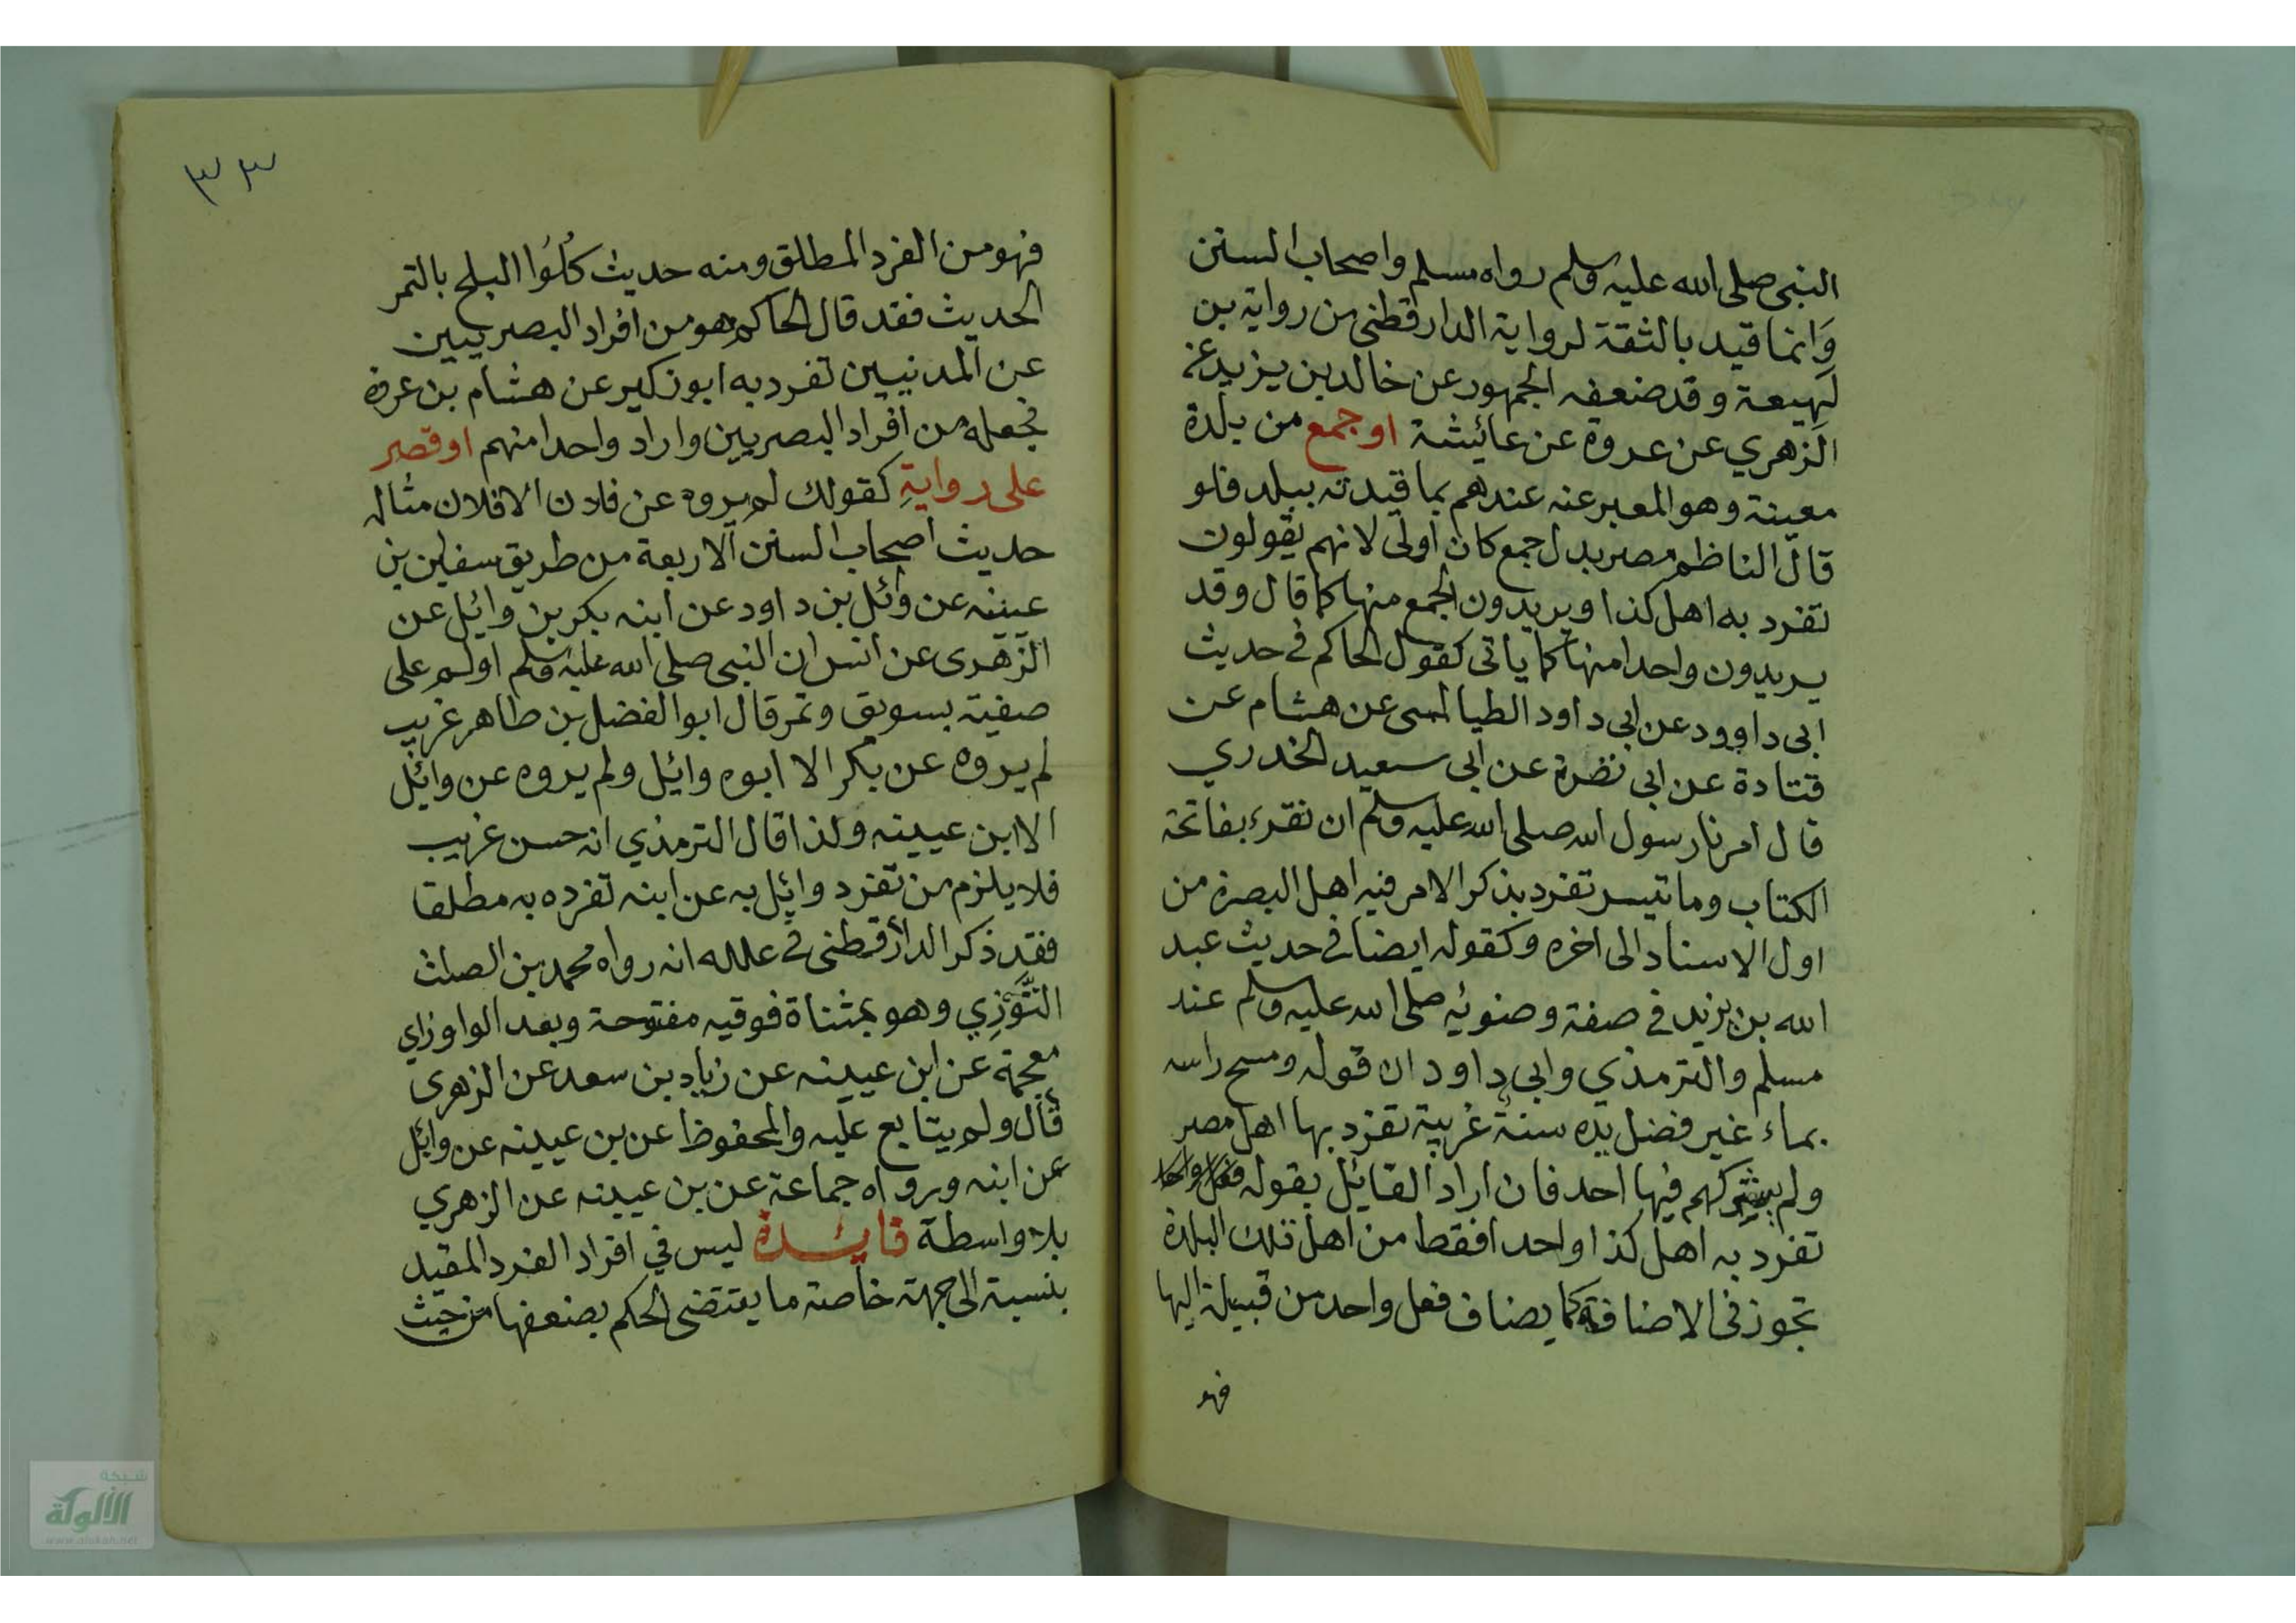 النبى صلى الله عليه وسلم رواه مسلم واصحاب السنن
وَانما قيد بالثقة لرواية الدارقطنى من رواية بن
لهيعة وقد ضعفه الجمهور عن خالد بن يزيد عن
الزهري عن عروة عن عائيشة او جمع من بلدة
معينة وهو المعبر عنه عندهم بما قيدته ببلد فلو
قال الناظم مصر بدل جمع كان اولى لانهم يقولون
تفرد به اهل كذا ويريدون الجمع منها كما قال وقد
يريدون واحدا منها كما ياتى كقول الحاكم فى حديث
ابى داوود عن ابى داود الطيالسى عن هشام عن
قتادة عن ابى نضرة عن ابى سعيد الخدري
قال امرنا رسول الله صلى الله عليه وسلم ان نقرء بفاتحة
الكتاب وما تيسر تفرد بذكر الامر فيه اهل البصرة من
اول الاسناد الى اخره وكقوله ايضا فى حديث عبد
الله بن يزيد فى صفة وضوئيه صلى الله عليه وسلم عند
مسلم والترمذي وابى داود ان قوله ومسح راسه
بماء غير فضل يده سنة غريبة تفرد بها اهل مصر
ولم يشركهم فيها احد فان اراد القائيل بقوله
تفرد به اهل كذا واحدا فقط من اهل تلك البلدة
تجوز فى الاضافة كما يضاف فعل واحد من قبيلة اليها
فهو
٣٣
فهو من الفرد المطلق ومنه حديث كُلُوا البلح بالتمر
الحديث فقد قال الحاكم هو من افراد البصريين
عن المدنيين تفرد به ابو زكير عن هشام بن عروة
فجعله من افراد البصريين واراد واحدا منهم او قصر
على رواية كقولك لم يروه عن فلان الا فلان مثاله
حديث اصحاب السنن الاربعة من طريق سفين بن
عيينه عن وائل بن داود عن ابنه بكر بن وايل عن
الزهرى عن انس ان النبى صلى الله عليه وسلم اولم على
صفية بسويق وتمر قال ابو الفضل بن طاهر غريب
لم يروه عن بكر الا ابوه وائيل ولم يروه عن وائيل
الا ابن عيينه ولذا قال الترمذي انه حسن غريب
فلا يلزم من تفرد وايل به عن ابنه تفرده به مطلقا
فقد ذكر الدارقطنى فى علله انه رواه محمد بن الصلت
التَّوَّزِي وهو بمثناة فوقيه مفتوحة وبعد الواو زاي
معجمة عن ابن عيينه عن زياد بن سعد عن الزهرى
قال ولم يتابع عليه والمحفوظ عن بن عيينه عن وائل
عن ابنه ورواه جماعة عن بن عيينه عن الزهري
بلا واسطة فايئدة ليس في افراد الفرد المقيد
بنسبة الى جهة خاصة ما يقتضى الحكم بضعفها من حيث
شبكة
الألوكة
www.alukah.net